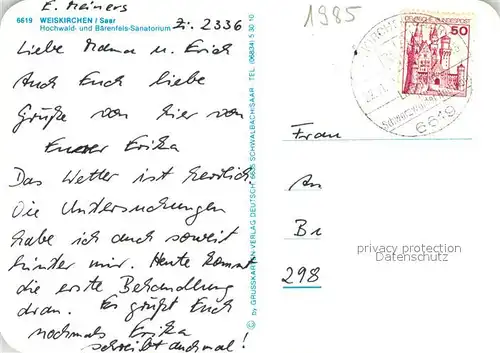 E. Meiners
6619 WEISKIRCHEN / Saar
Hochwald- und Bärenfels-Sanatorium
Zi. 2336
Liebe Mama u. Erich
Auch Euch liebe
Grüße von hier von
Eurer Erika
Das Wetter ist herrlich.
Die Untersuchungen
habe ich auch soweit
hinter mir. Heute kommt
die erste Behandlung
dran. Es grüßt Euch
nochmals Erika
schreibt auch mal!
© by GRUSSKARTEN-VERLAG DEUTSCH 6635 SCHWALBACH/SAAR TEL. (06834) 5 30 10
1985
DEUTSCHE BUNDESPOST
50
6619
Frau
An
Br
298
privacy protection
Datenschutz